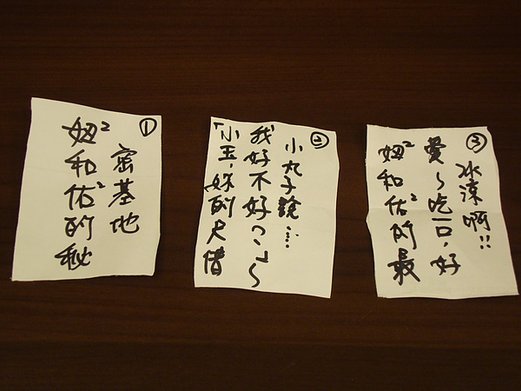 ①
妞²和佑²的秘
密基地
②
「小玉,妳的尺借
我好不好??」~
小丸子說…
③
妞²和佑²的最
愛~吃一口,好
冰涼啊!!